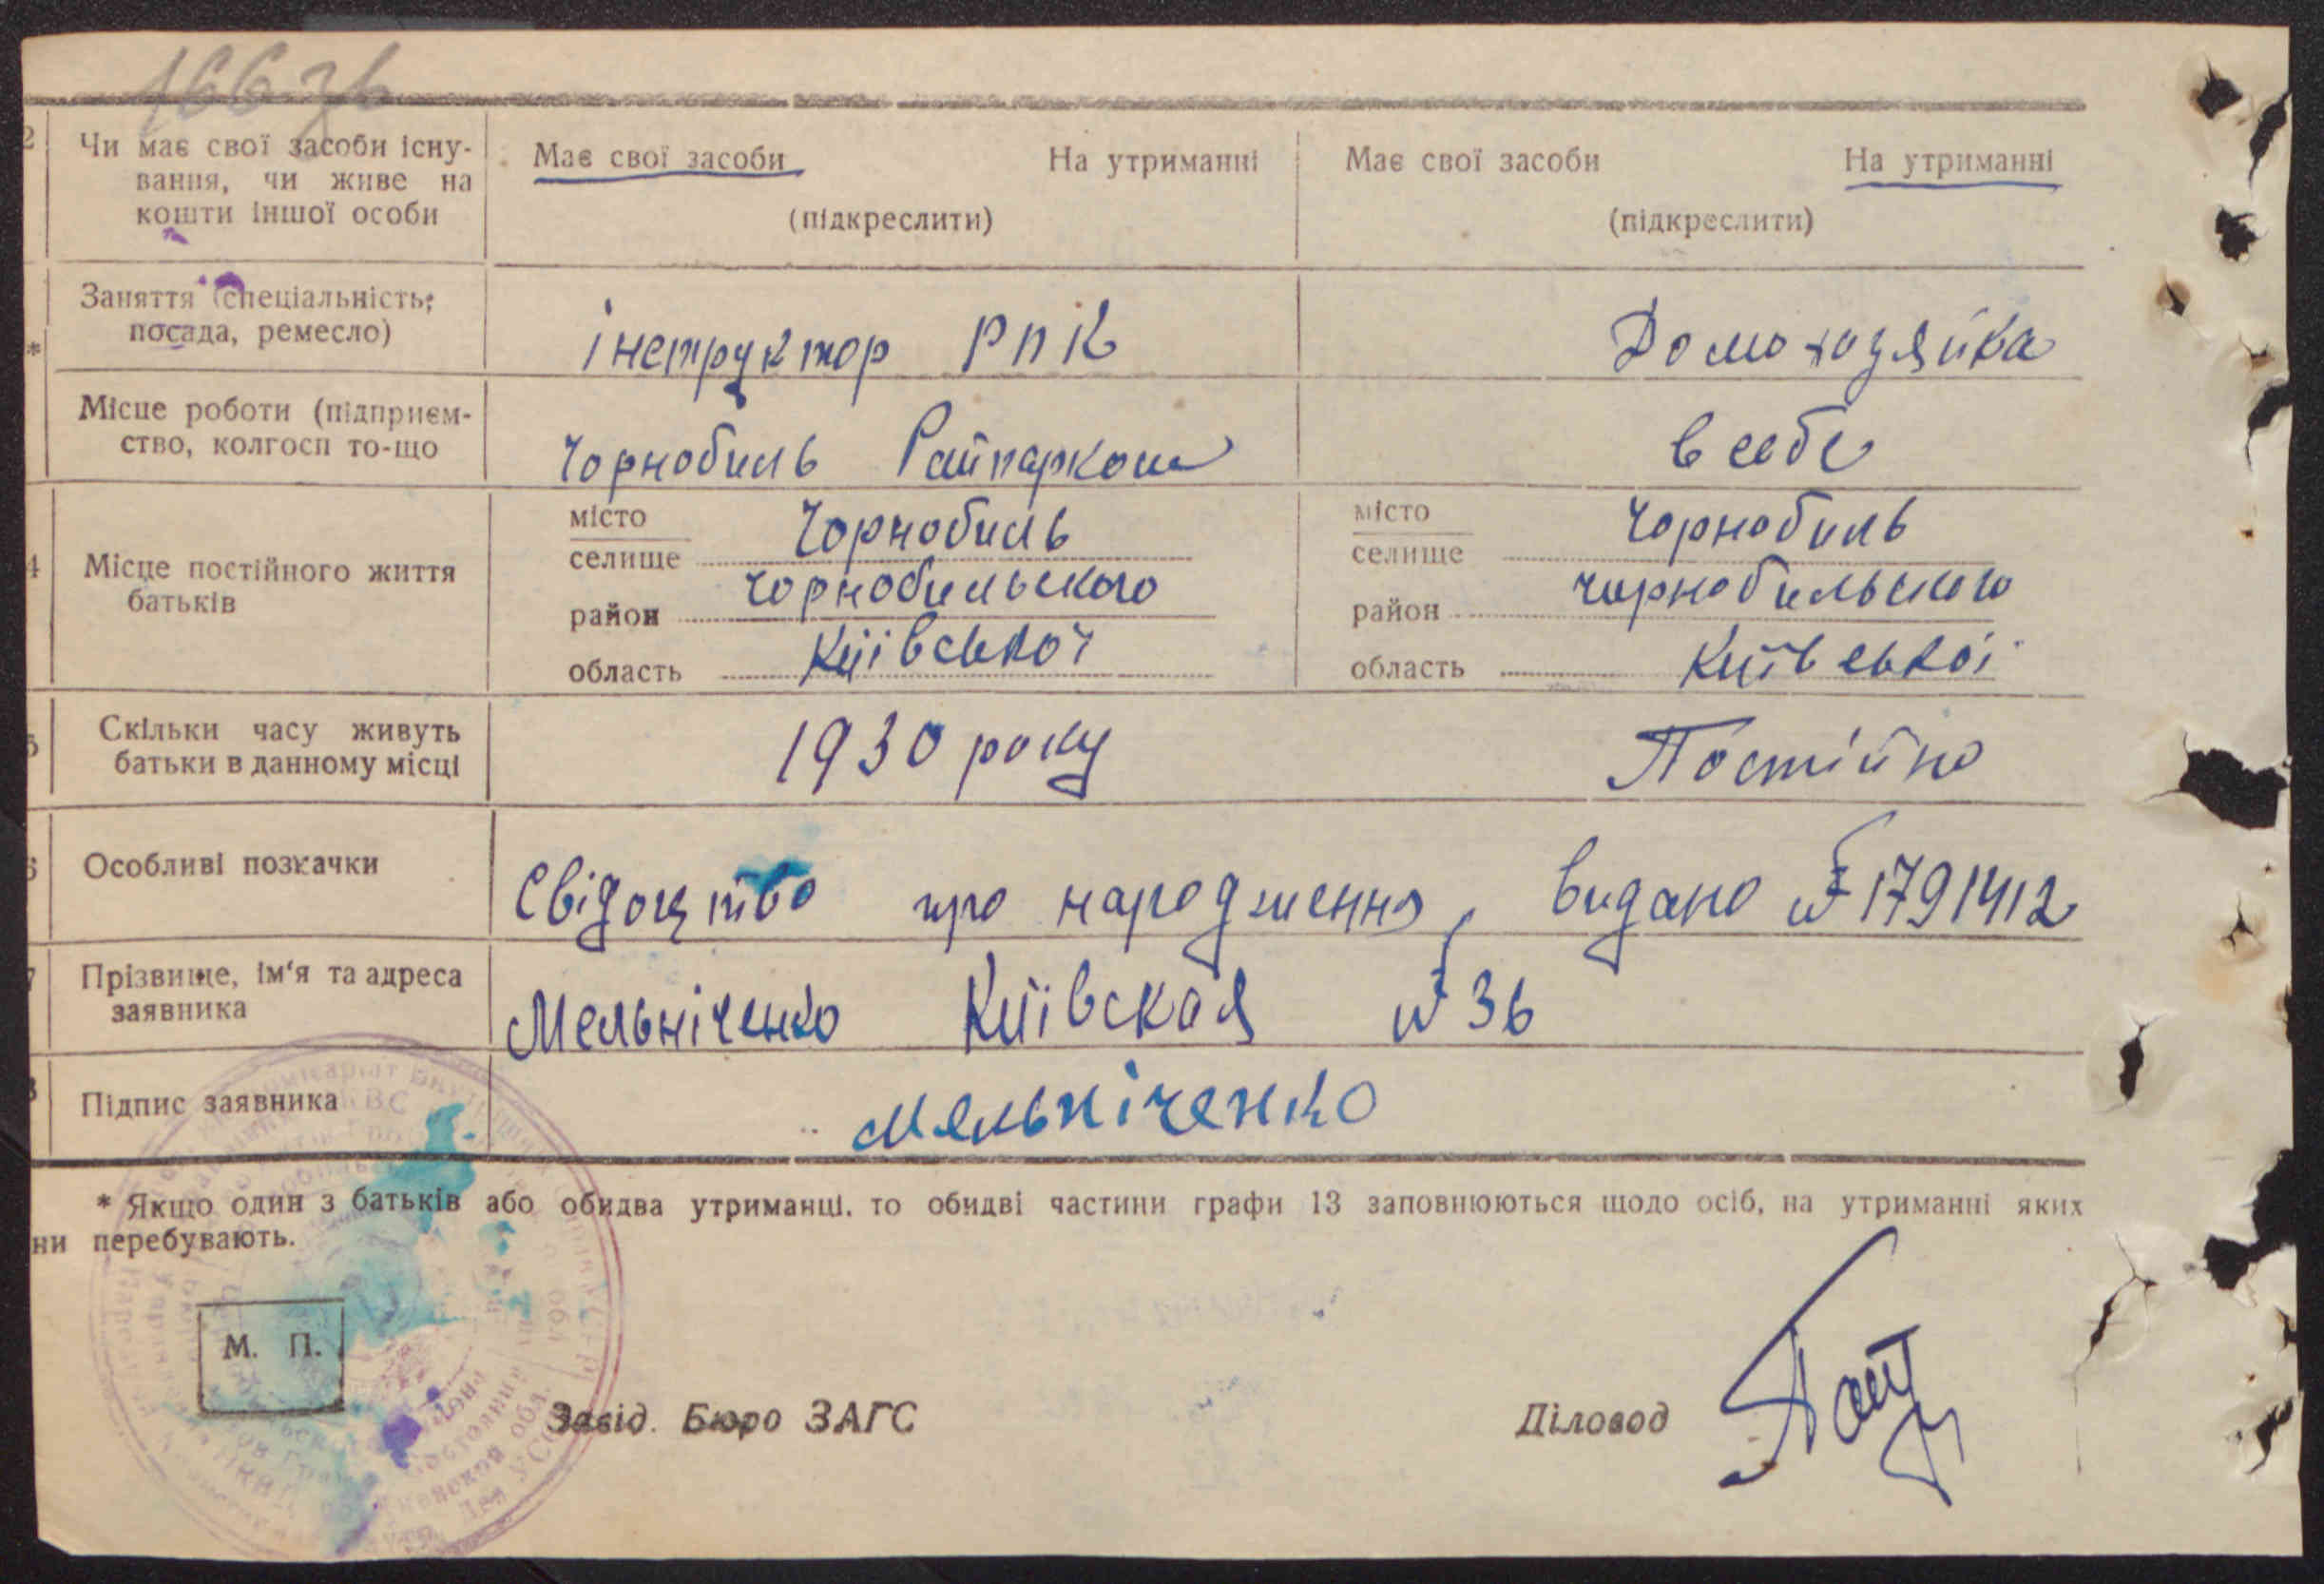 1667б
2 Чи має свої засоби існу-
вання, чи живе на
кошти іншої особи
Має свої засоби На утриманні
(підкреслити)
Має свої засоби На утриманні
(підкреслити)
Заняття (спеціальність,
посада, ремесло)
*
інструктор РПК
Домохозяйка
Місце роботи (підприєм-
ство, колгосп то-що
Чорнобиль Райпарком
в себе
4 Місце постійного життя
батьків
місто
селище Чорнобиль
район Чорнобильского
область Київської
місто
селище Чорнобиль
район Чорнобильского
область Київської
5 Скільки часу живуть
батьки в данному місці
1930 року
Постійно
6 Особливі позначки
Свідоцтво про народження, видано № 1791412
7 Прізвище, ім‘я та адреса
заявника
Мельніченко Київская № 36
8 Підпис заявника
Мельніченко
* Якщо один з батьків або обидва утриманці, то обидві частини графи 13 заповнюються щодо осіб, на утриманні яких
ни перебувають.
М. П.
Завід. Бюро ЗАГС
Діловод